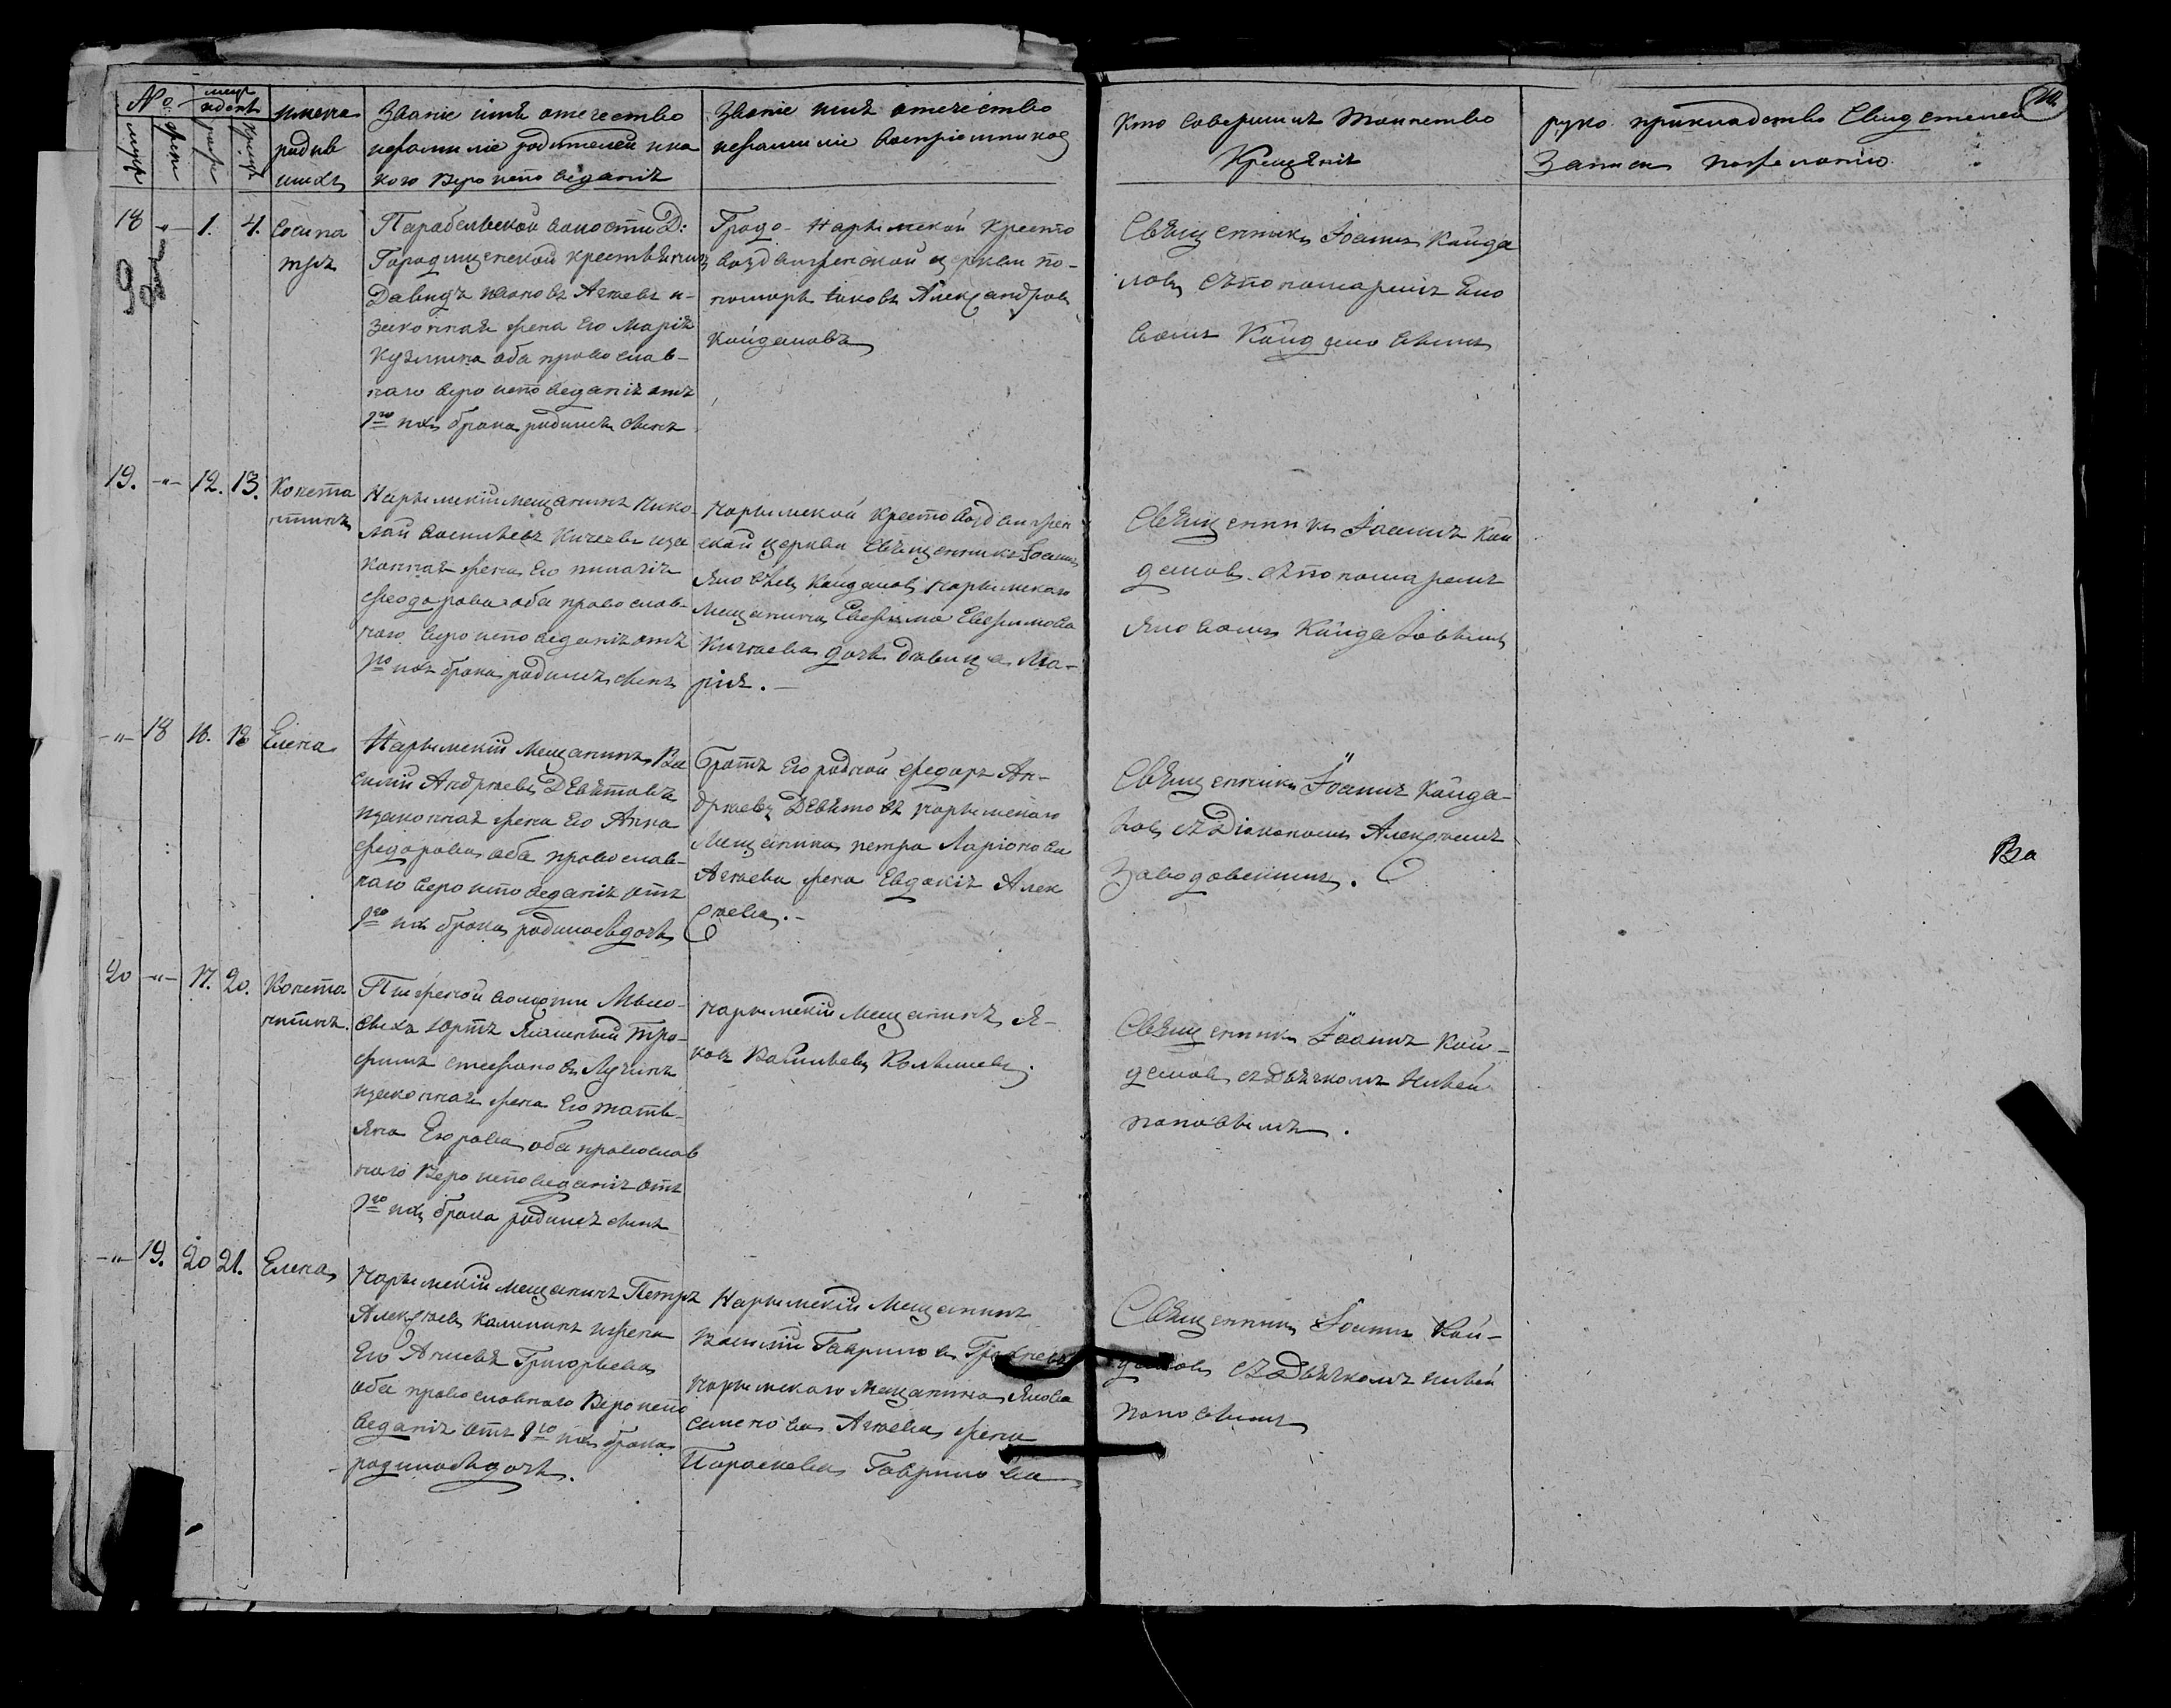 №
мцъ
и день
мужс
женс
рож
крещ
имена
родив
шихъ
Званіе имя отечество
и фамиліе родителей и ка
кого вероисповеданія
Званіе имя отечество
и фамиліе воспріемников
Кто совершилъ таинство
Крещенія
руко прикладство свидетелей
записи по желанію
18 -"- 1. 4.
Сосипа
тръ
Парабельской волости Д:
Городищенской крестьянинъ
Давидъ Аггеевъ и
законная жена его Марія
Кузмина оба православ-
наго вероисповеданія отъ
1го ихъ брака родился сынъ
Градо-Нарымской кресто
воздвиженской церкви по-
номарь Іаковъ Александровъ
Кайдаловъ
Священникъ Іоаннъ Кайда
ловъ съ пономаремъ Яко
вомъ Кайдаловымъ
19. -"- 12. 13.
Конста
нтинъ
Нарымскій мещанинъ Нико-
лай Васильевъ Кичеевъ иза
конная жена его
Феодорова оба православ-
наго вероисповеданія отъ
1го ихъ брака родился сынъ
Нарымской кресто воздвижен
ской церкви священникъ Іоаннъ
Яковлевъ Кайдаловъ Нарымскаго
мещанина Евфима Евфимова
Кичеева дочь девица Ма-
рія. -
Священникъ Іоаннъ Кай
даловъ съ пономаремъ
Яковомъ Кайдаловымъ
-"- 18 16. 18
Елена
Нарымскій мещанинъ Ва
силій Андреевъ Девятовъ
изаконная жена его Анна
Федорова оба православ-
наго вероисповеданія отъ
1го ихъ брака родилась дочь
Братъ его родной Федоръ Ан-
дреевъ Девятовъ Нарымскаго
мещанина Петра Ларіонова
Аггеева жена Евдокія Алек
сеева. -
Священникъ Іоаннъ Кайда-
ловъ съ Діакономъ Алексеемъ
Заводовскимъ.
Ва
20 -"- 17. 20.
Конста
нтинъ.
волости
юртъ Ясашный Тро-
фимъ Стефановъ Лучинъ
изаконная жена его Татья-
яна Егорова оба православ
наго вероисповеданія отъ
1го ихъ брака родился сынъ
Нарымскій мещанинъ Я-
ковъ Васильевъ
Священникъ Іоаннъ Кай-
даловъ съ Дьячкомъ
Поповымъ.
-"- 19. 20 21.
Елена
Нарымскій мещанинъ Петръ
Алексеевъ Калининъ и жена
его Григорьева
оба православнаго вероиспо
веданія отъ 1го ихъ брака
родилась дочь.
Нарымскій мещанинъ
Василій Гаврилов
Нарымскаго мещанина Якова
Семенова Аггеева жена
Параскева Гаврилова
Священникъ Іоаннъ Кай-
даловъ съ Дьячкомъ
Поповымъ